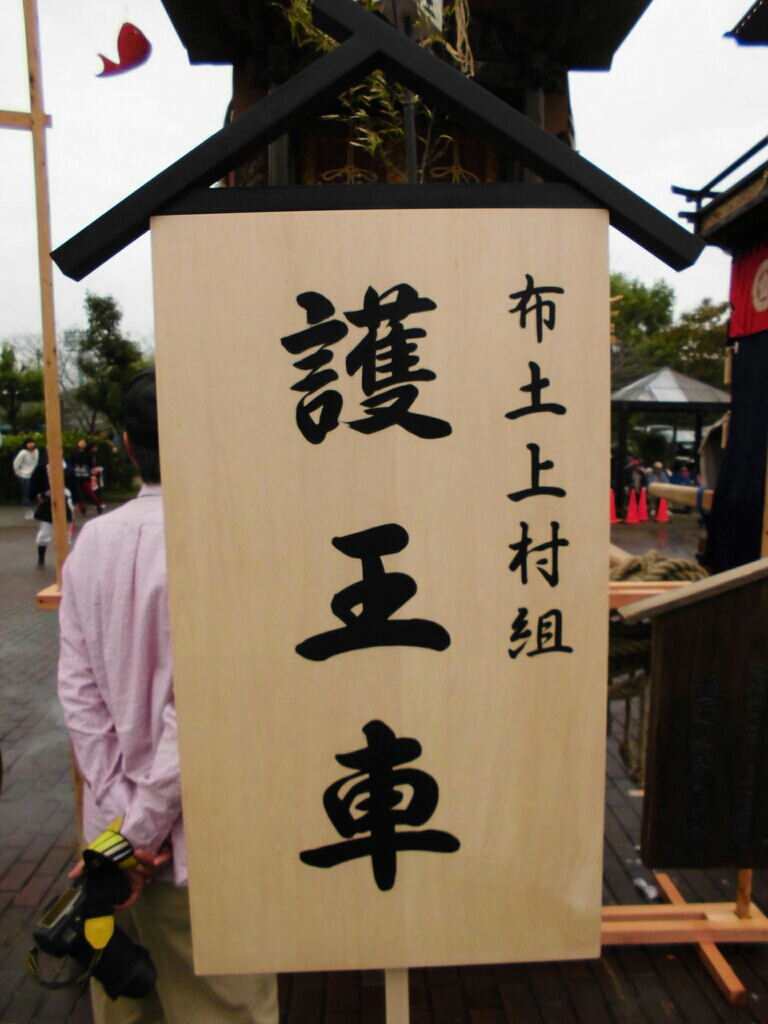 布土上村組
護王車